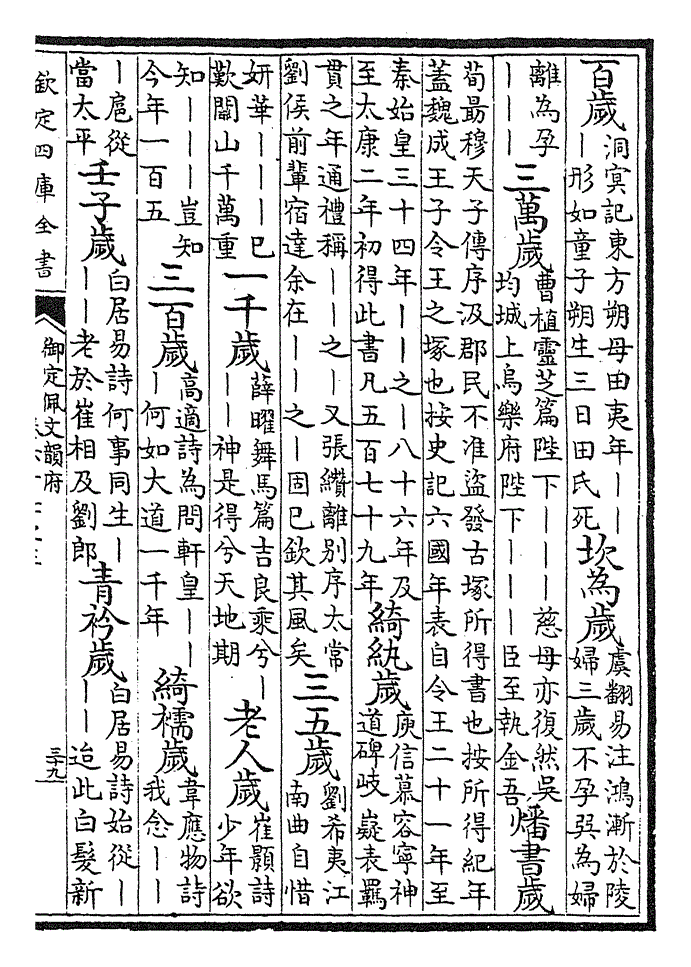 百歲
洞冥記東方朔母由夷年｜｜
｜形如童子朔生三日田氏死
坎為歲
虞翻易注鴻漸於陵
婦三歲不孕巽為婦
離為孕
｜｜｜
三萬歲
曹植靈芝篇陛下｜｜｜慈母亦復然吳
均城上烏樂府陛下｜｜｜臣至執金吾
燔書歲
荀勗穆天子傳序汲郡民不准盜發古塚所得書也按所得紀年
蓋魏成王子令王之塚也按史記六國年表自令王二十一年至
秦始皇三十四年｜｜之｜八十六年及
至太康二年初得此書凡五百七十九年
綺紈歲
庾信慕容寧神
道碑岐嶷表羈
貫之年通禮稱｜｜之｜又張纘離別序太常
劉侯前輩宿達余在｜｜之｜固已欽其風矣
三五歲
劉希夷江
南曲自惜
妍華｜｜｜已
歎關山千萬重
一千歲
薛曜舞馬篇吉良乘兮｜
｜｜神是得兮天地期
老人歲
崔顥詩
少年欲
知｜｜｜豈知
今年一百五
三百歲
高適詩為問軒皇｜｜
｜何如大道一千年
綺襦歲
韋應物詩
我念｜｜
｜扈從
當太平
壬子歲
白居易詩何事同生｜
｜｜老於崔相及劉郎
青衿歲
白居易詩始從｜
｜｜迨此白髮新
欽定四庫全書
御定佩文韻府
三十九